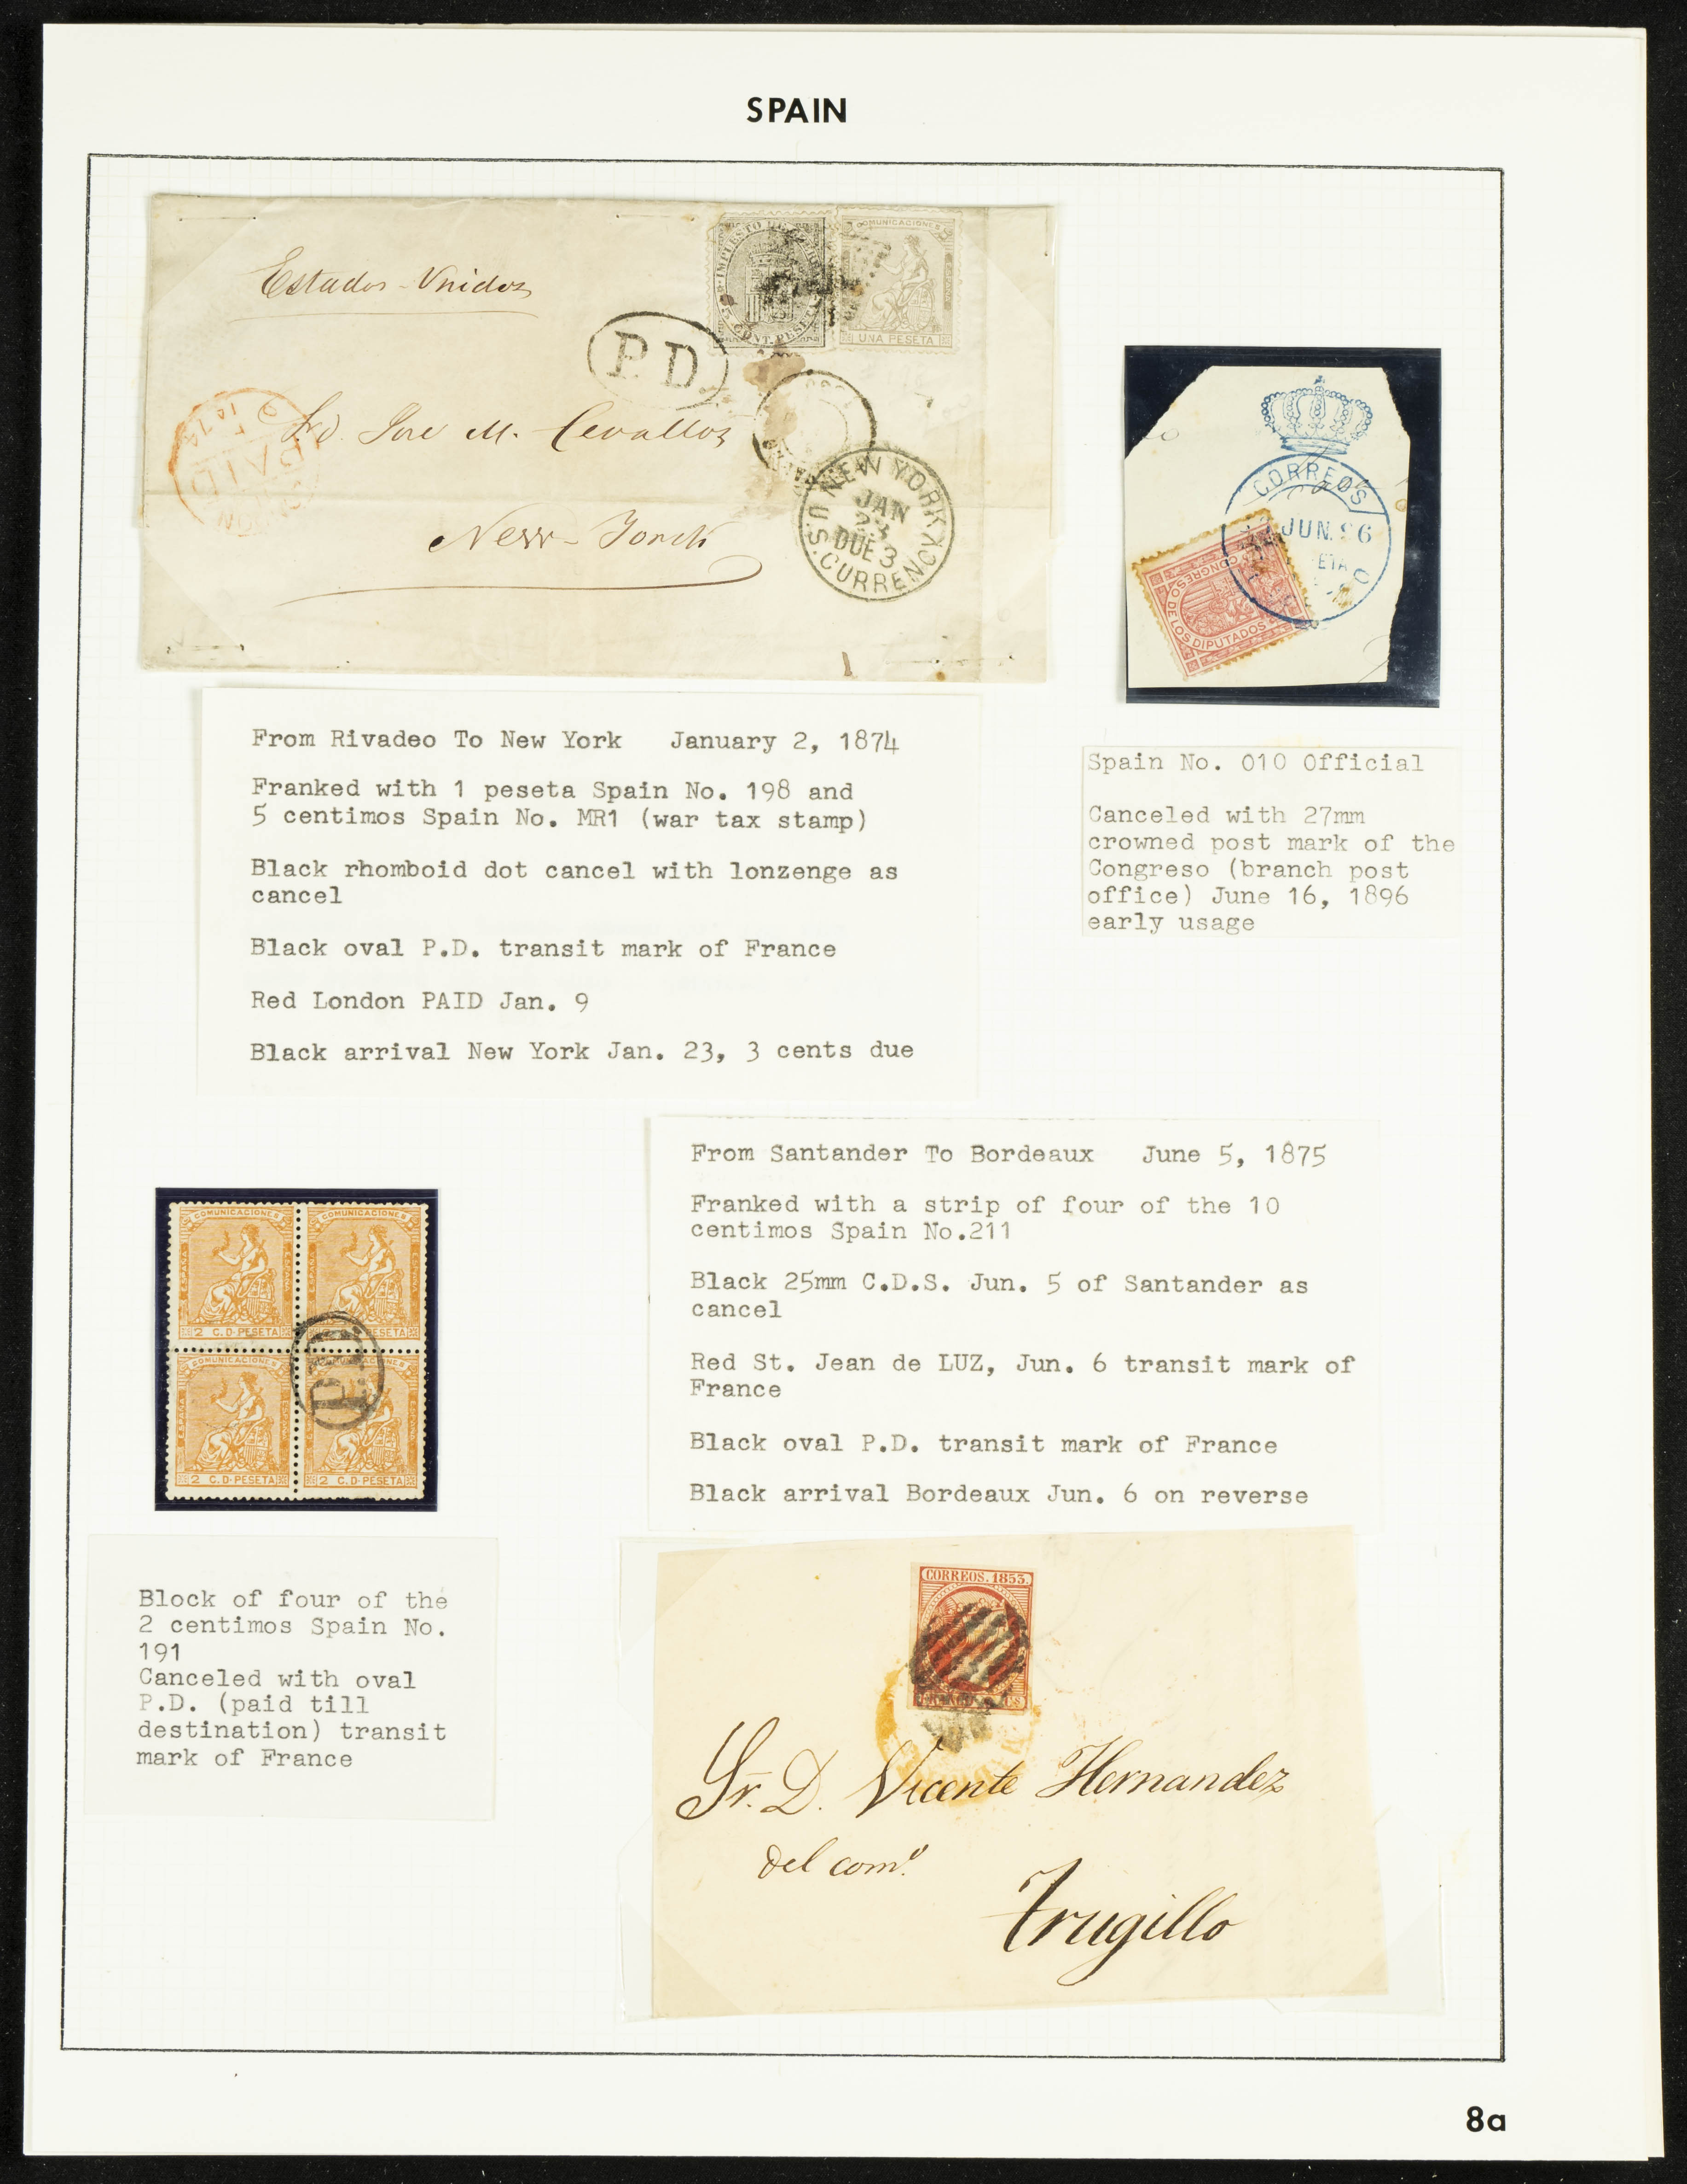 SPAIN
Estados-Unidos
IMPUESTO DE
5 CENT. PESETA
COMUNICACIONES
UNA PESETA
P.D.
Sr D. Jose M. Cevallos
PAID
LONDON
New-Yorck
NEW YORK
JAN
23
DUE 3
U.S. CURRENCY
CORREOS
JUN. 96
CONGRESO DE LOS DIPUTADOS
From Rivadeo To New York January 2, 1874
Franked with 1 peseta Spain No. 198 and
5 centimos Spain No. MR1 (war tax stamp)
Black rhomboid dot cancel with lonzenge as
cancel
Black oval P.D. transit mark of France
Red London PAID Jan. 9
Black arrival New York Jan. 23, 3 cents due
Spain No. 010 Official
Canceled with 27mm
crowned post mark of the
Congreso (branch post
office) June 16, 1896
early usage
COMUNICACIONES
ESPAÑA
ESPAÑA
2 C. D-PESETA
COMUNICACIONES
ESPAÑA
ESPAÑA
PESETA
COMUNICACIONES
ESPAÑA
ESPAÑA
2 C. D-PESETA
ESPAÑA
2 C. D-PESETA
P.D.
Block of four of the
2 centimos Spain No.
191
Canceled with oval
P.D. (paid till
destination) transit
mark of France
From Santander To Bordeaux June 5, 1875
Franked with a strip of four of the 10
centimos Spain No.211
Black 25mm C.D.S. Jun. 5 of Santander as
cancel
Red St. Jean de LUZ, Jun. 6 transit mark of
France
Black oval P.D. transit mark of France
Black arrival Bordeaux Jun. 6 on reverse
CORREOS. 1853.
Sr. D. Vicente Hernandez
del comº
Trugillo
8a